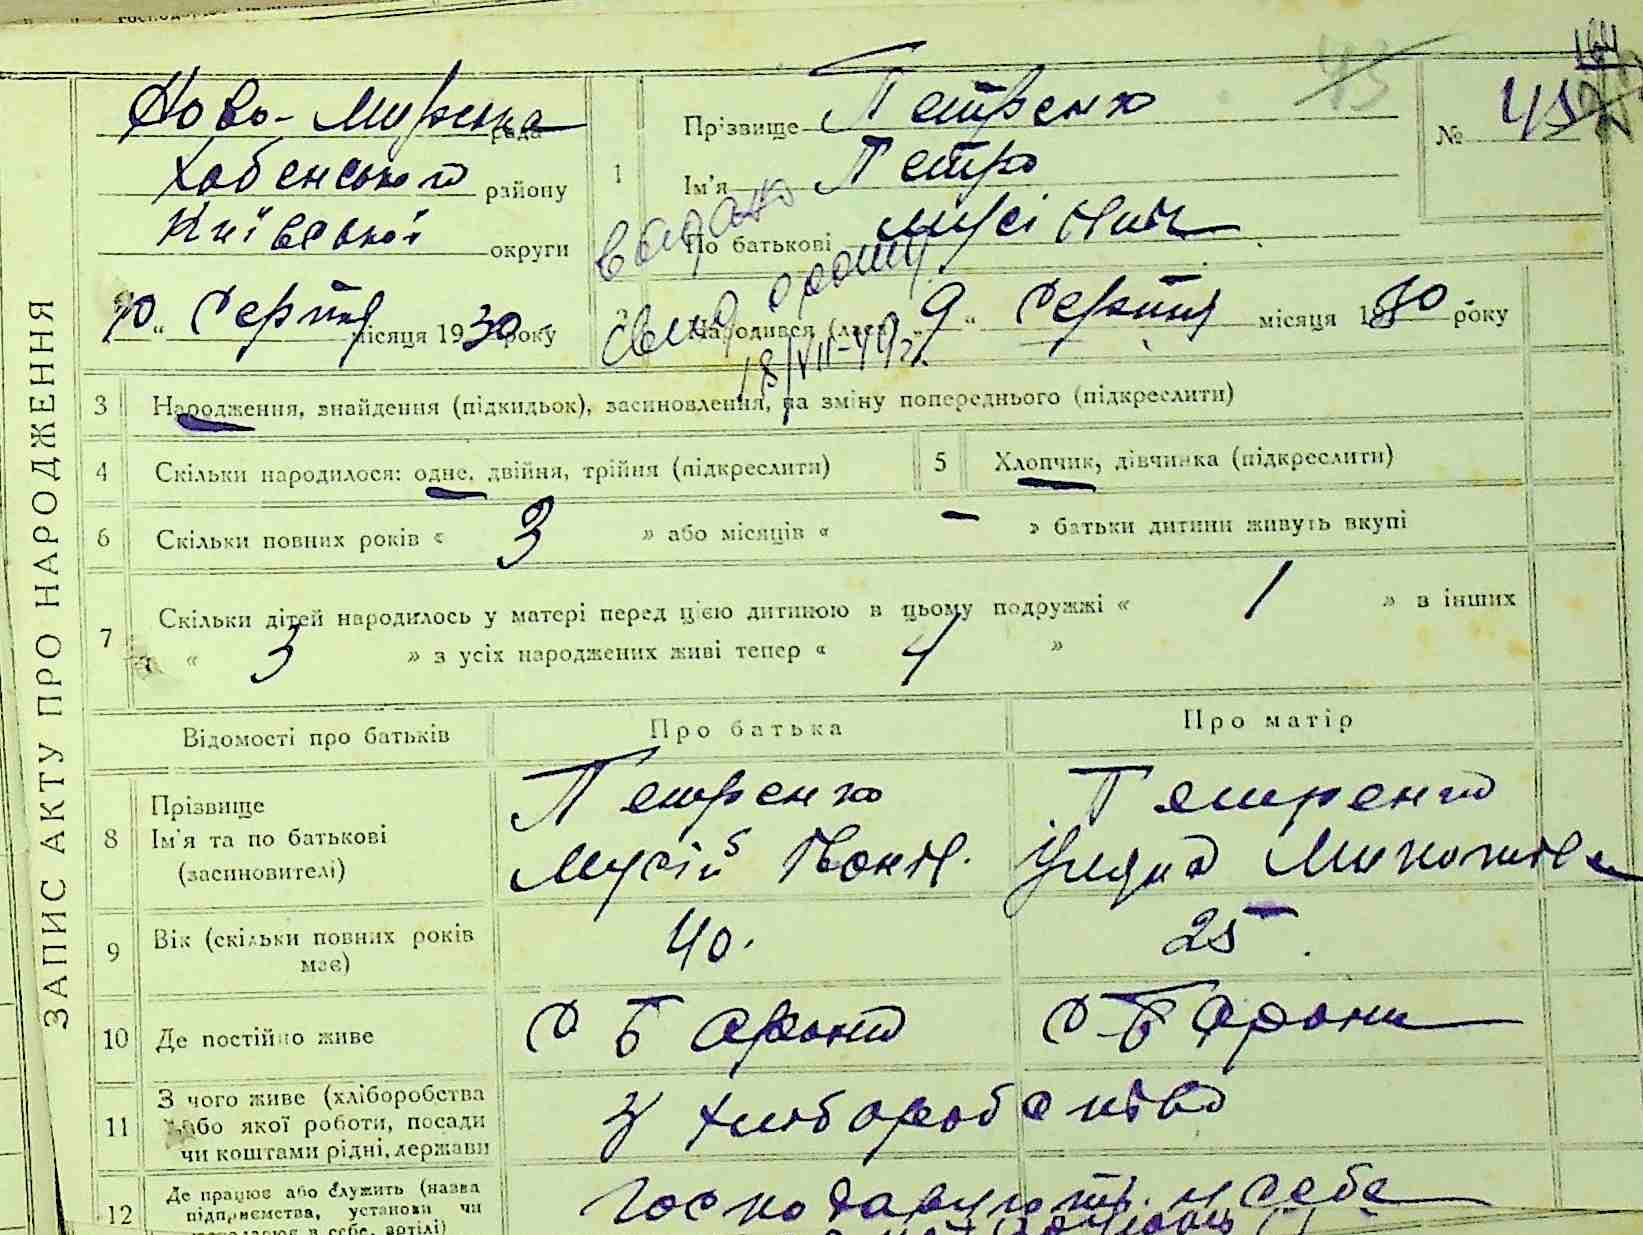 ЗАПИС АКТУ ПРО НАРОДЖЕННЯ
Ново-Мирська рада
Хабенського району
Київської округи
10 " серпня місяця 1930 року
1
Прізвище Петренко
Ім'я Петро
По батькові Мусійович
видано
свид
18/VII-49г.
Народився 9 " серпня місяця 1930 року
№ 45
164
45
3 Народження, знайдення (підкидьок), засиновлення, на зміну попереднього (підкреслити)
4 Скільки народилося: одне, двійня, трійня (підкреслити)
5 Хлопчик, дівчинка (підкреслити)
6 Скільки повних років « 3 » або місяців « – » батьки дитини живуть вкупі
7 Скільки дітей народилось у матері перед цією дитиною в цьому подружжі « 1 » в інших
« 3 » з усіх народжених живі тепер « 4 »
Відомості про батьків Про батька Про матір
8 Прізвище
Ім'я та по батькові
(засиновителі)
Петренко
Мусій
Петренко
Уляна
9 Вік (скільки повних років
має)
40. 25.
10 Де постійно живе
11 З чого живе (хліборобства
або якої роботи, посади
чи коштами рідні, держави
З хліборобства
12 Де працює або служить (назва
підприємства, установи чи
в себе, артілі)
господарують у себе